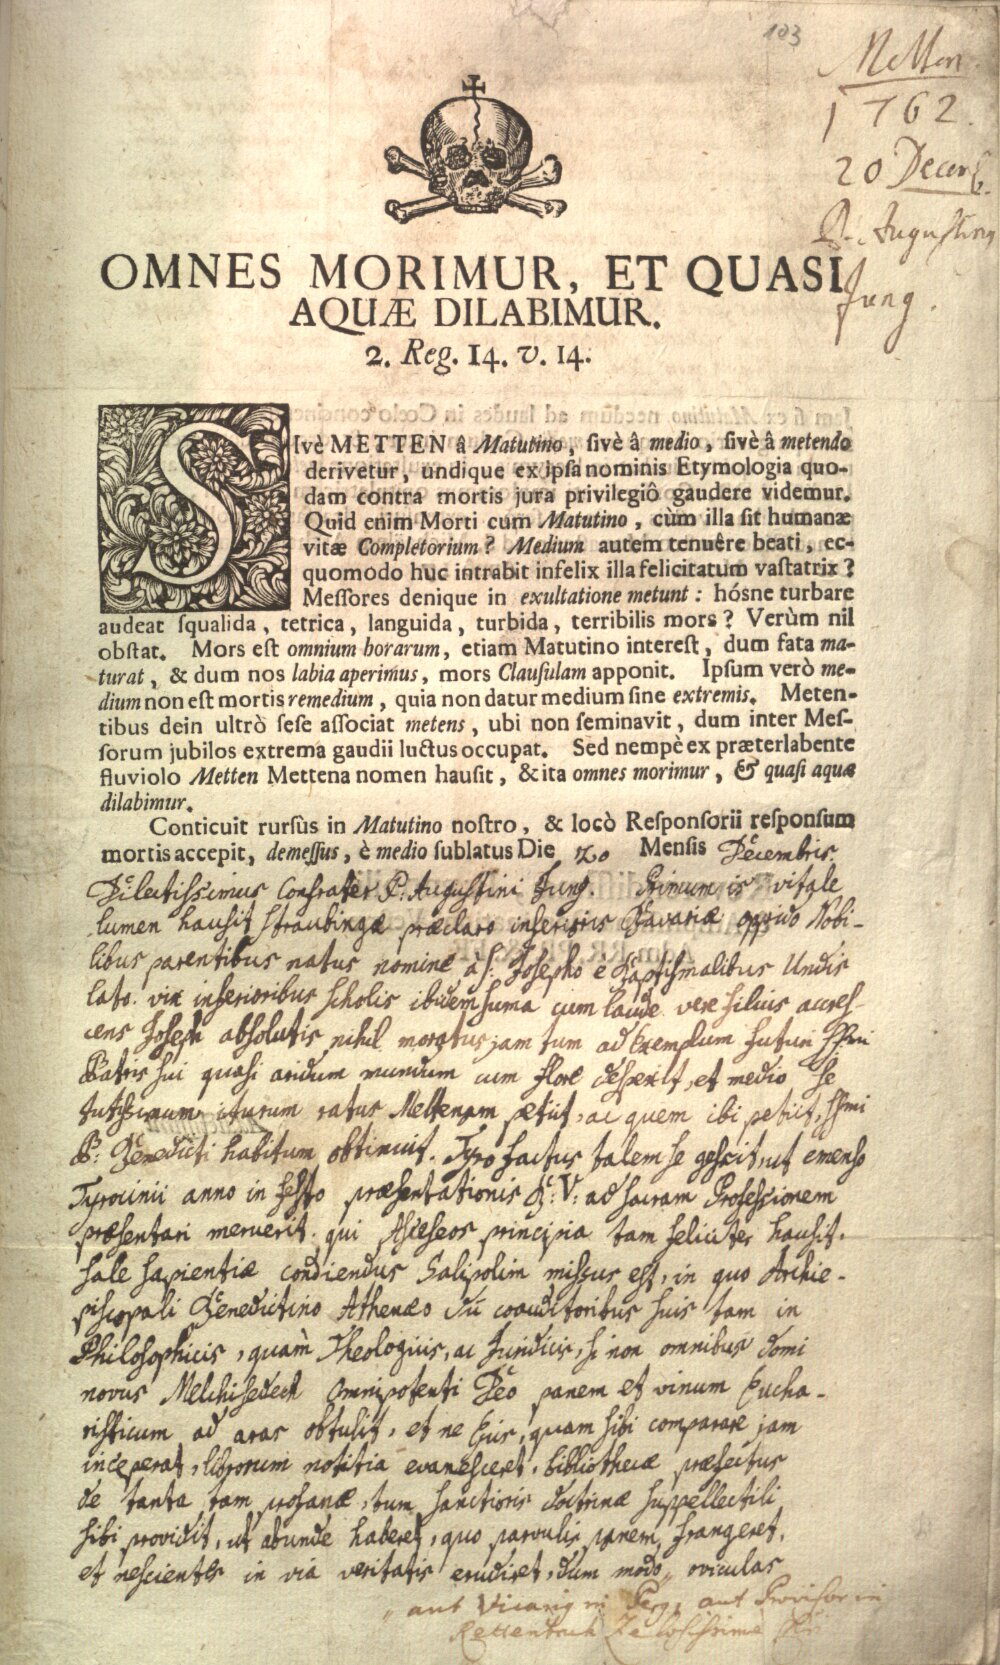 103
Metten
1762.
20 Decemb.
P. Augustinus
Jung.
OMNES MORIMUR, ET QUASI
AQUÆ DILABIMUR.
2. Reg. 14. v. 14.
SIvè METTEN â Matutino, sivè â medio, sivè â metendo
derivetur, undique ex ipsa nominis Etymologia quo-
dam contra mortis jura privilegiô gaudere videmur.
Quid enim Morti cum Matutino, cùm illa sit humanæ
vitæ Completorium? Medium autem tenuêre beati, ec-
quomodo huc intrabit infelix illa felicitatum vastatrix?
Messores denique in exultatione metunt: hósne turbare
audeat squalida, tetrica, languida, turbida, terribilis mors? Verùm nil
obstat. Mors est omnium horarum, etiam Matutino interest, dum fata ma-
turat, & dum nos labia aperimus, mors Clausulam apponit. Ipsum verò me-
dium non est mortis remedium, quia non datur medium sine extremis. Meten-
tibus dein ultrò sese associat metens, ubi non seminavit, dum inter Mes-
sorum jubilos extrema gaudii luctus occupat. Sed nempè ex præterlabente
fluviolo Metten Mettena nomen hausit, & ita omnes morimur, & quasi aquæ
dilabimur.
Conticuit rursùs in Matutino nostro, & locò Responsorii responsum
mortis accepit, demessus, è medio sublatus Die 20 Mensis Decembris.
Dilectissimus Confrater P. Augustini Jung. Primum is vitale
lumen hausit Straubingæ præclaro inferioris Bavariæ oppido Nobi-
libus parentibus natus nomine a S. Josepho e Baptismalibus Undis
lato. vix inferioribus scholis ibidem suma cum laude vere filius accres-
cens Joseph absolutis nihil moratus jam tum ad Exemplum futuri SSmi
Patris sui quasi aridum mundum cum flore deseruit, et medio se
tutissimum iturum ratus Mettenam petiit, ac quem ibi petiit, SSmi
P: Benedicti habitum obtinuit. Tyro factus talem se gessit, ut emenso
Tyrocinii anno in festo præsentationis B: V: ad sacram Professionem
præsentari meruerit. qui Asceseos principia tam feliciter hausit,
sale sapientiæ condiendus Salipolim missus est, in quo Archie-
piscopali Benedictino Athenæo cũ coauditoribus suis tam in
Philosophicis, quam Theologicis, ac Juridicis, si non omnibus domi
novus Melchisedech Omnipotenti Deo panem et vinum Eucha-
risticum ad aras obtulit, et ne Ejus, quam sibi comparare jam
inceperat, librorum notitia evanesceret, bibliothecæ præfectus
de tanta tam profanæ, tum sanctioris doctrinæ suppellectili
sibi providit, ut abunde haberet, quo parvulis panem frangeret,
et nescientes in via veritatis erudiret, dum modo oviculas
aut Vicarius in Perg, aut Provisor in
Rettenbach Zelosissime